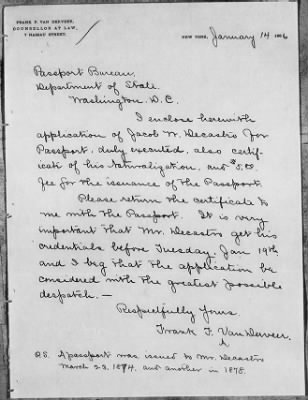 FRANK F. VAN DERVEER,
COUNSELLOR AT LAW,
7 NASSAU STREET.
NEW YORK, January 14 1896
Passport Bureau,
Department of State.
Washington D.C.
I enclose herewith
application of Jacob W. Decastro for
Passport, duly executed, also certif-
icate of his Naturalization, and $5.00
fee for the issuance of the Passport.
Please return the certificate to
me with the Passport. It is very
important that Mr. Decastro get his
credentials before Tuesday, Jan 19th
and I beg that the application be
considered with the greatest possible
despatch.—
Respectfully Yours,
Frank F. Van Derveer.
P.S. A passport was issued to Mr. Decastro
March 23, 1874, and another in 1878.